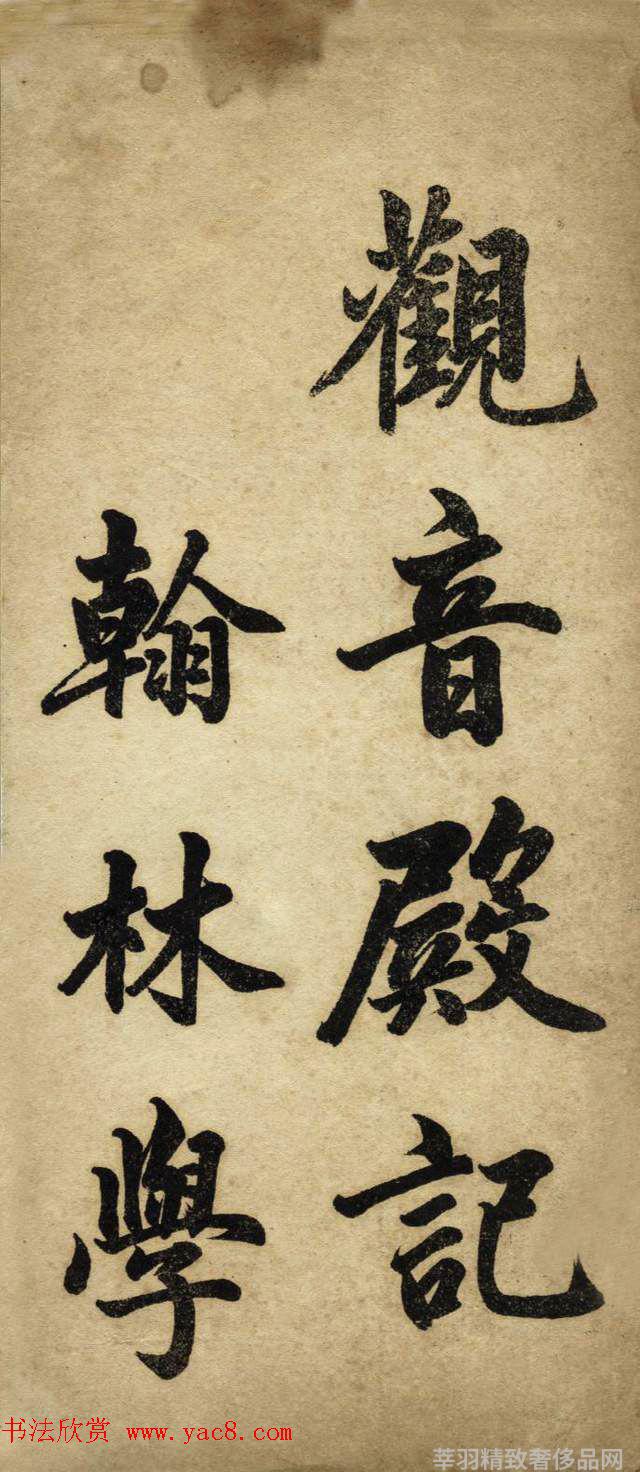 觀音殿記
翰林學
书法欣赏 www.yac8.com
莘羽精致奢侈品网